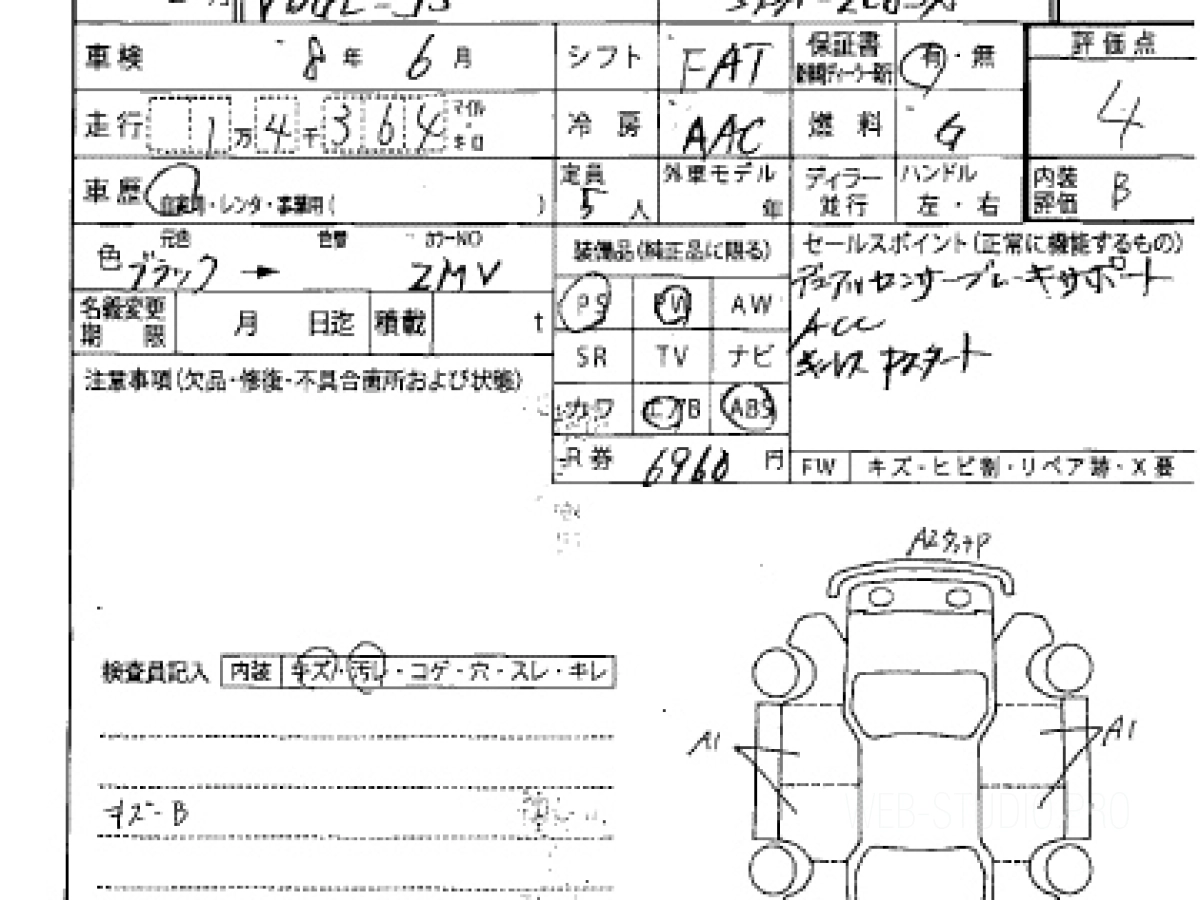 車検 8年 6月 シフト FAT 保証書 有・無 評価点
走行 1万4千364 マイル・キロ 冷房 AAC 燃料 G 4
車歴 自家用・レンタ・事業用( ) 定員 5人 外車モデル 年 ディラー 並行 ハンドル 左・右 内装評価 B
色 元色 ブラック → 色替 カラーNO ZMV
装備品(純正品に限る) セールスポイント(正常に機能するもの)
デュアルセンサーブレーキサポート
ACC
名義変更期限 月 日迄 積載 t
PS PW AW
SR TV ナビ
カワ エアB ABS
注意事項(欠品・修復・不具合箇所および状態)
R券 6960 円 FW キズ・ヒビ割・リペア跡・X要
検査員記入 内装 キズ・汚レ・コゲ・穴・スレ・キレ
A1 A1
キズ-B
WEB-STUDIO.PRO